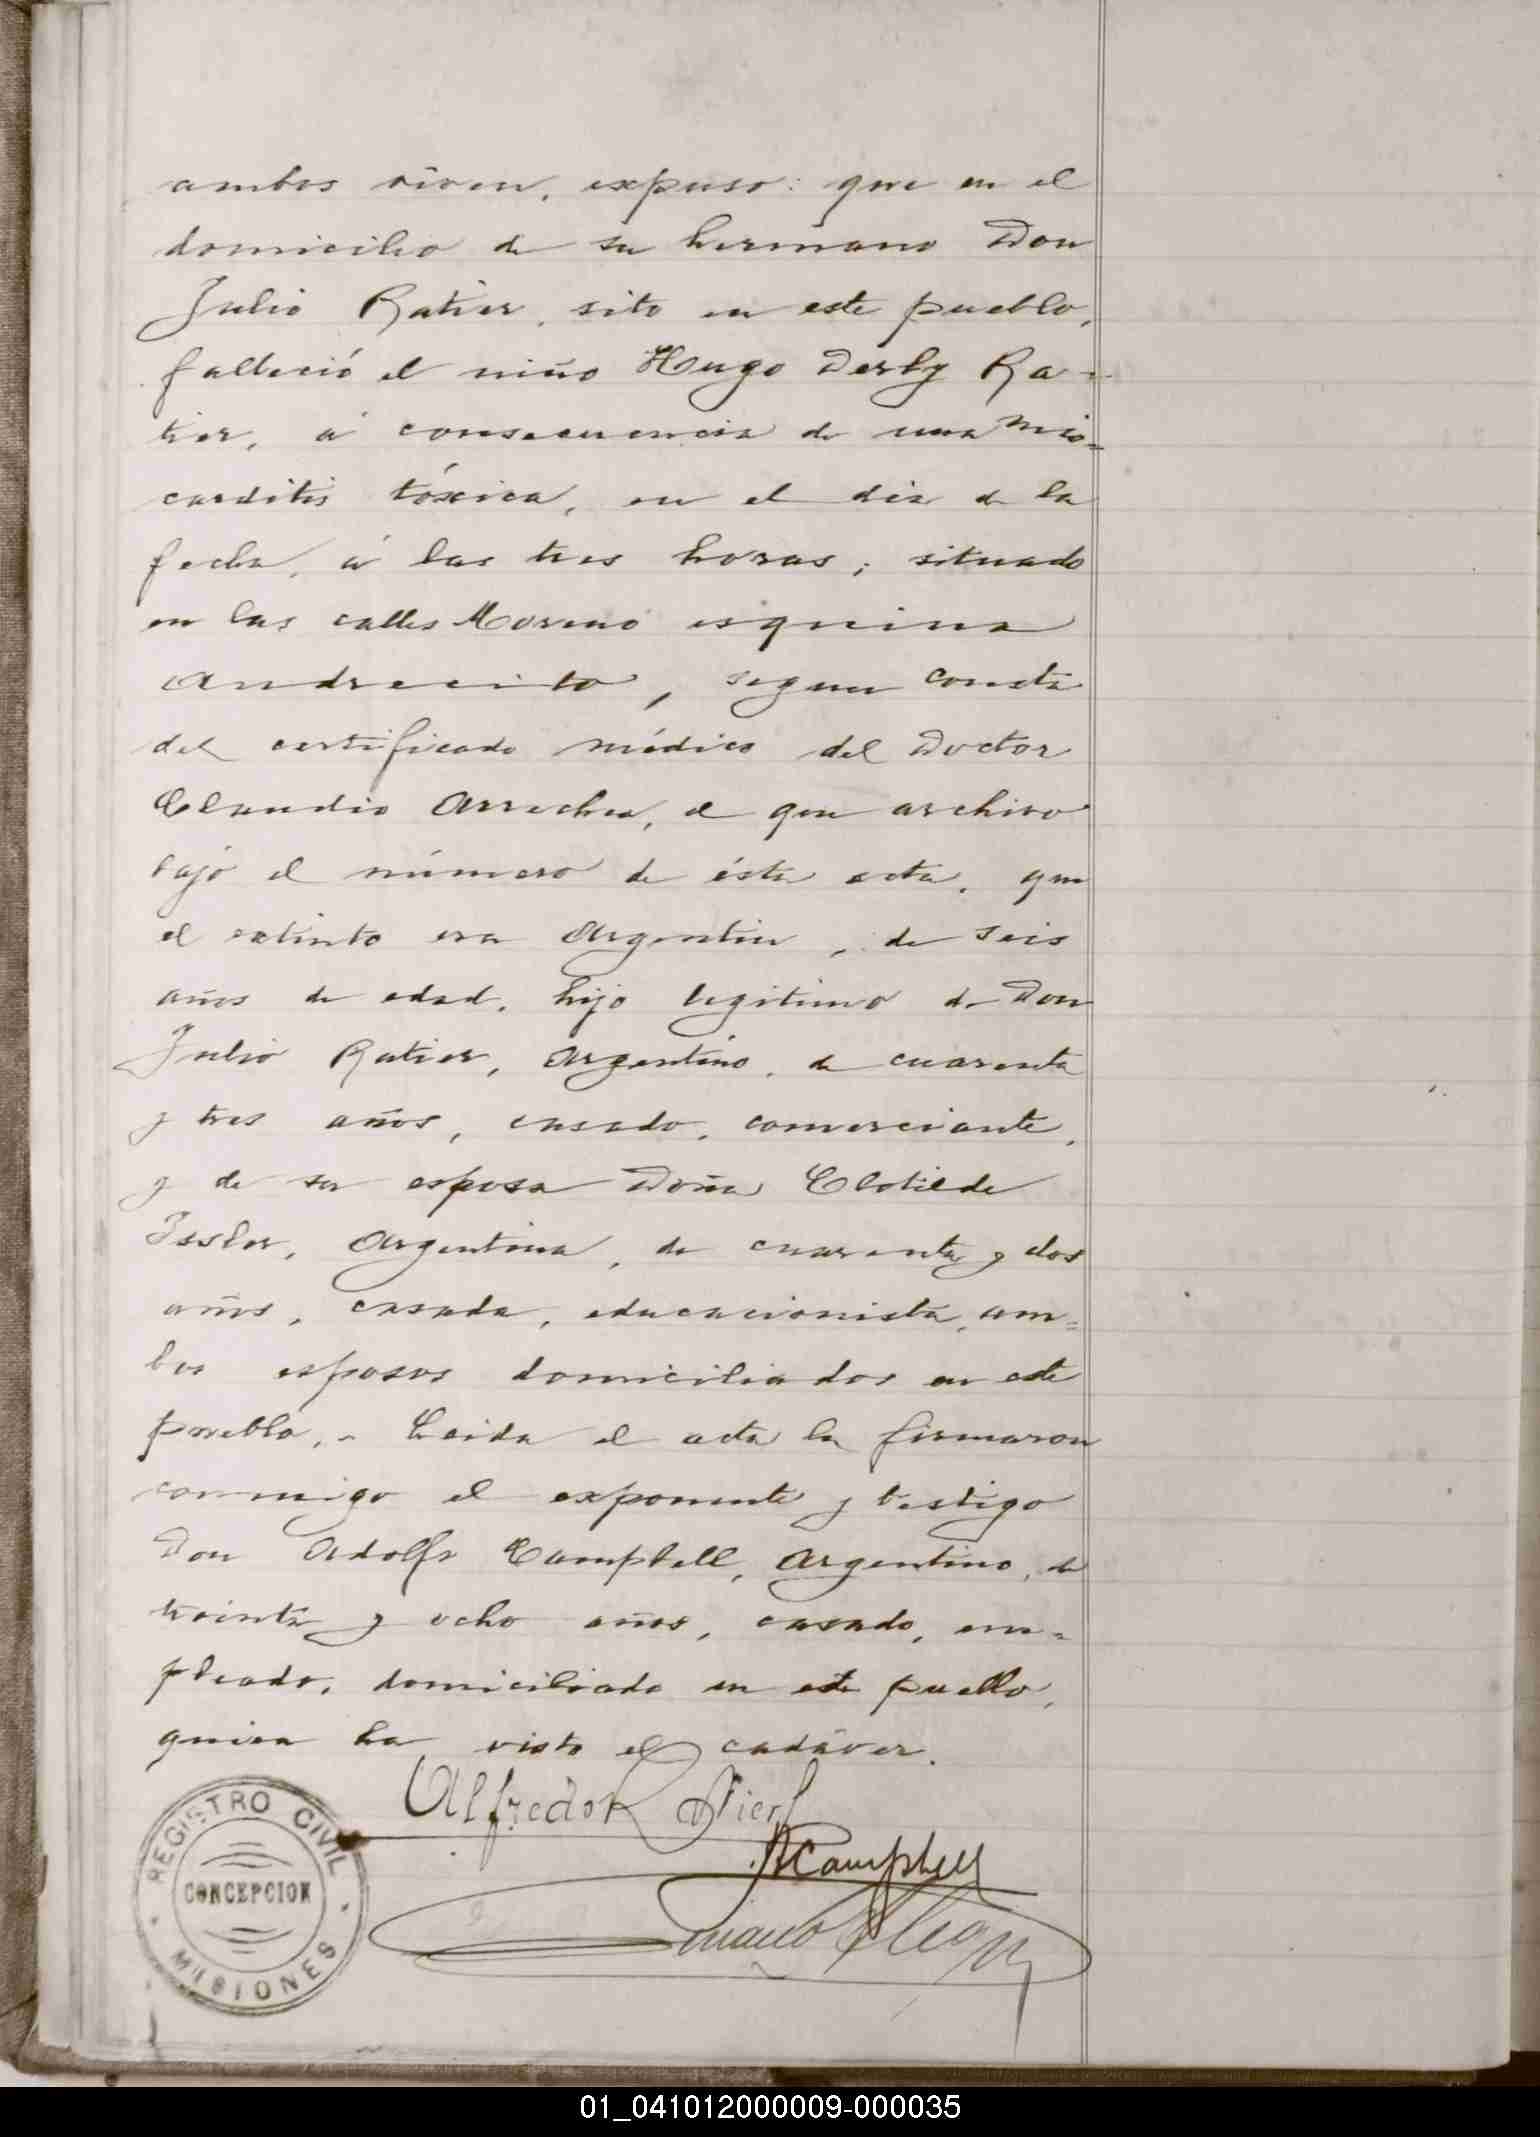 ambos viven, expuso: que en el
domicilio de su hermano Don
Julio Ratier, sito en este pueblo,
falleció el niño Hugo Derby Ra-
tier, á consecuencia de una mio=
carditis tóxica, en el dia de la
fecha, á las tres horas; situado
en las calles Moreno esquina
Andrecito, segun consta
del certificado médico del Doctor
Claudio Arrechea, el que archivo
bajo el número de ésta acta, que
el extinto era Argentino, de seis
años de edad, hijo legitimo de Don
Julio Ratier, Argentino, de cuarenta
y tres años, casado, comerciante,
y de su esposa Doña Clotilde
Issler, Argentina, de cuarenta y dos
años, casada, educacionista, am=
bos esposos domiciliados en este
pueblo.- Leida el acta la firmaron
conmigo el exponente y testigo
Don Adolfo Campbell, Argentino, de
treinta y ocho años, casado, em=
pleado, domiciliado en este pueblo,
quien ha visto el cadáver.
Alfredo R
A Campbell
REGISTRO CIVIL
CONCEPCION
MISIONES
01_041012000009-000035